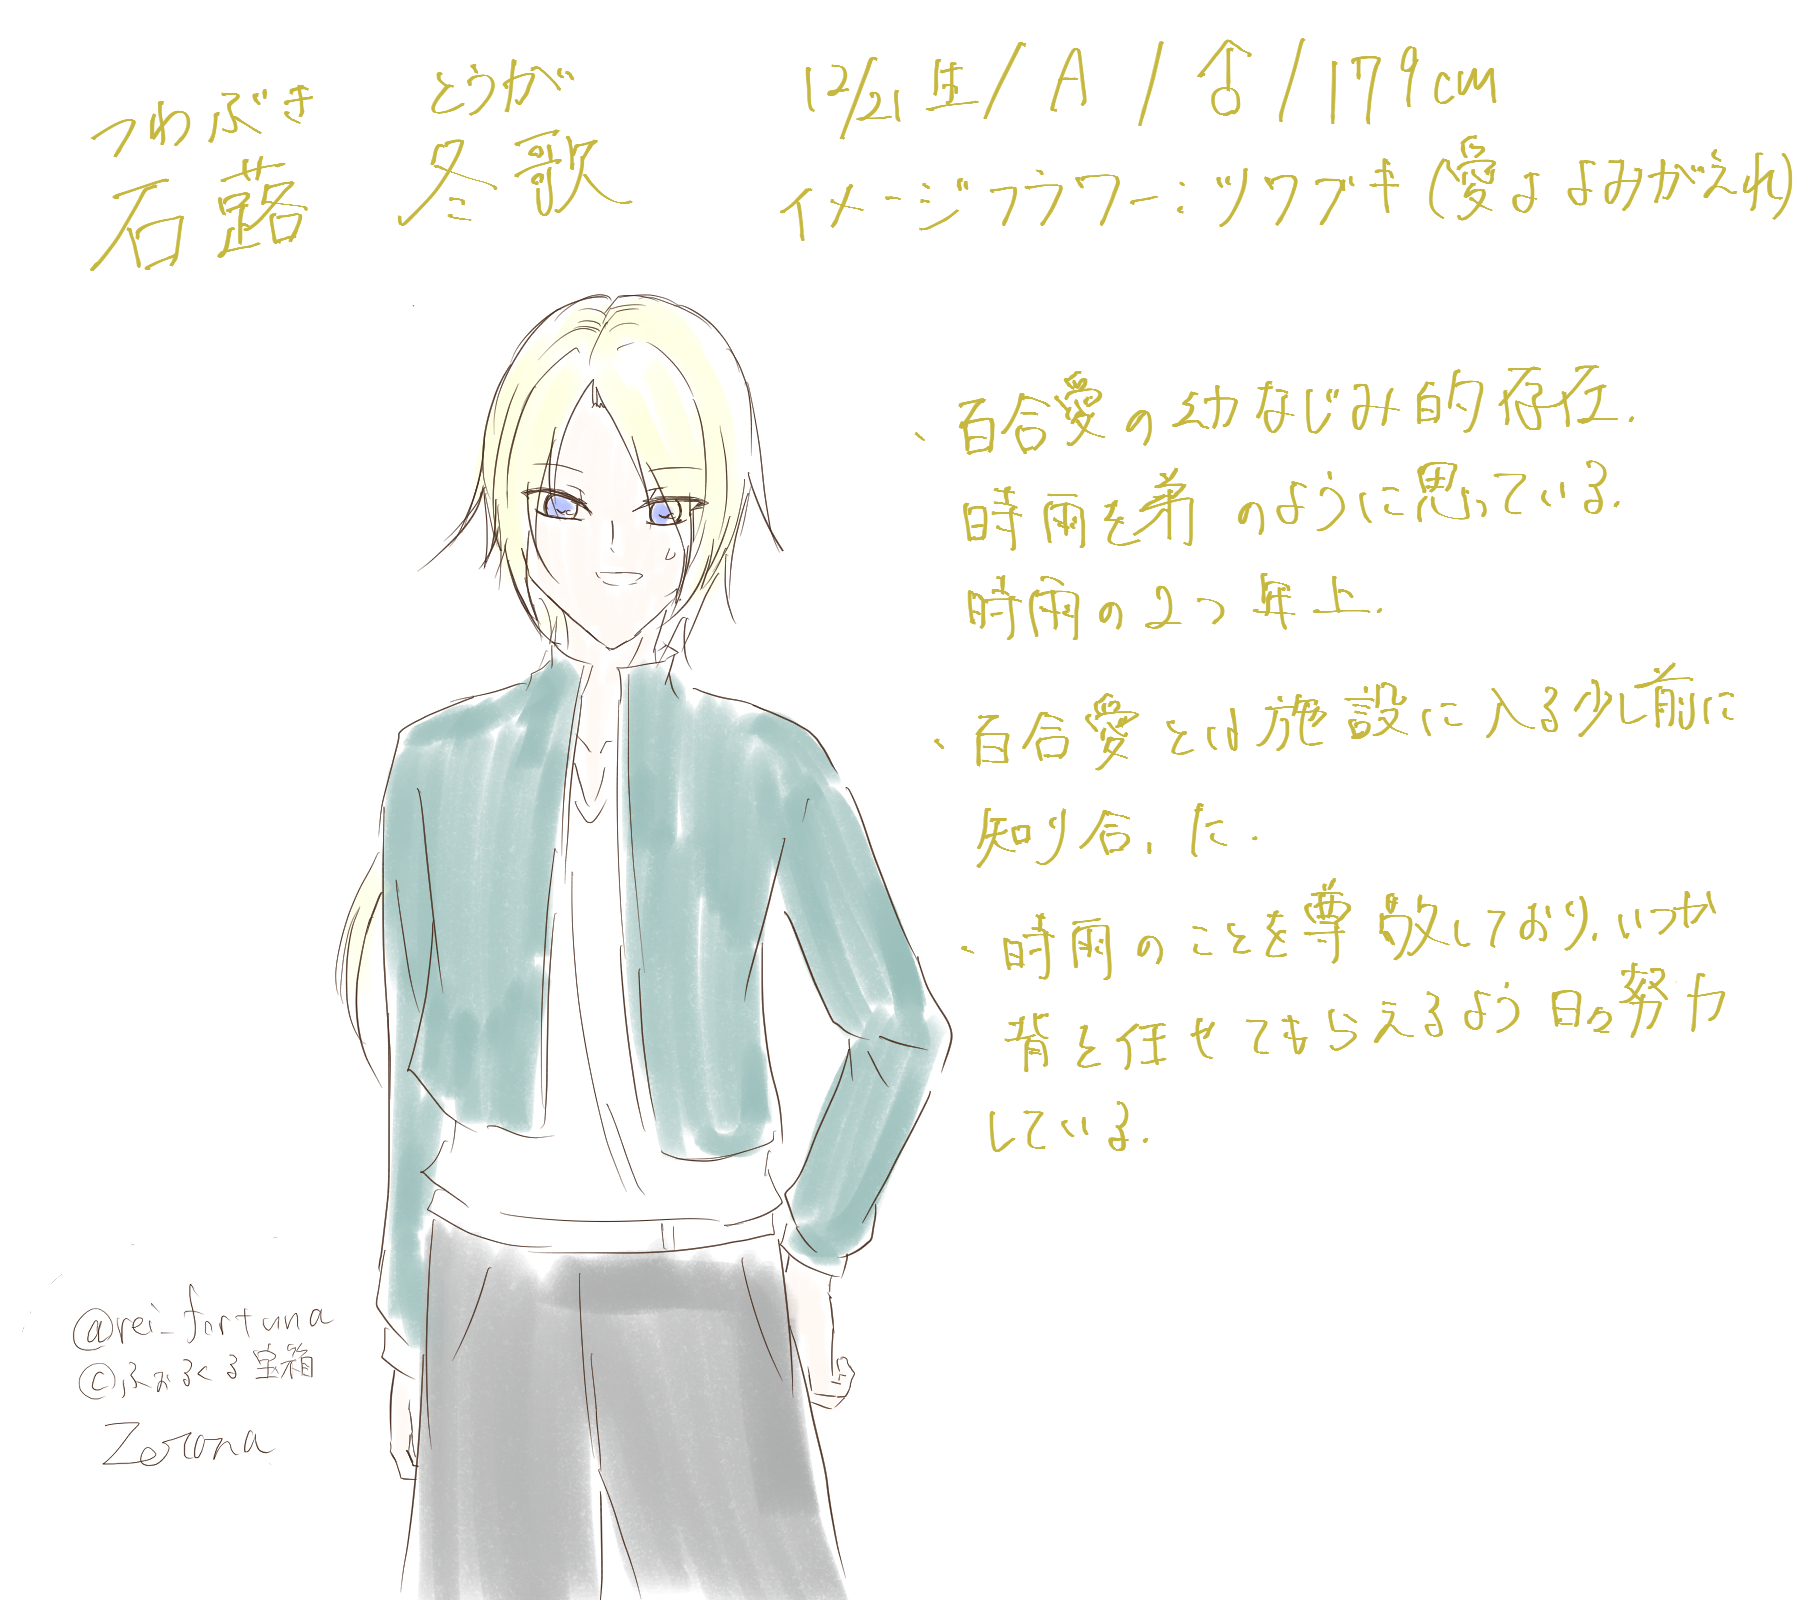 つわぶき とうが
石蕗 冬歌
12/21生/A/♂/179cm
イメージフラワー:ツワブキ(愛よよみがえれ)
・百合愛の幼なじみ的存在.
時雨を弟のように思っている.
時雨の2つ年上.
・百合愛とは施設に入る少し前に
知り合った.
・時雨のことを尊敬しており、いつか
背を任せてもらえるよう日々努力
している.
@rei_fortuna
©ふぉるくる宝箱
Zerona